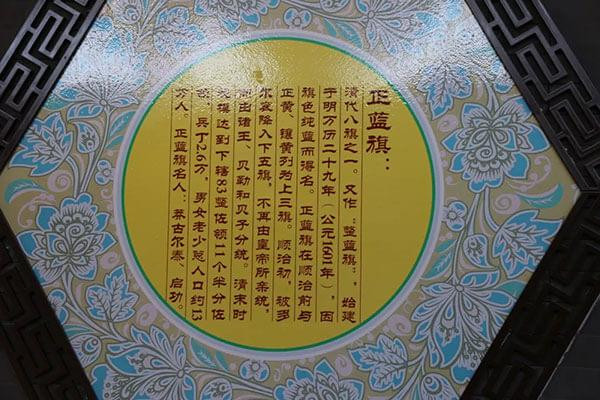 正蓝旗：
清代八旗之一。又作：整蓝旗：，始建
于明万历二十九年（公元1601年），因
旗色纯蓝而得名。正蓝旗在顺治前与
正黄、镶黄列为上三旗。顺治初，被多
尔衮降入下五旗，不再由皇帝所亲统，
而由诸王、贝勒和贝子分统。清末时
规模达到下辖83整佐领11个半分佐
领，兵丁2.6万，男女老少总人口约13
万人。正蓝旗名人：莽古尔泰、启功。